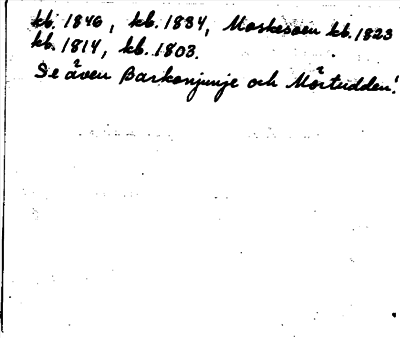 kb. 1846, kb. 1834, Moskosoen kb. 1823
kb. 1814, kb. 1803.
Se även Barkonjunje och Mårtudden!